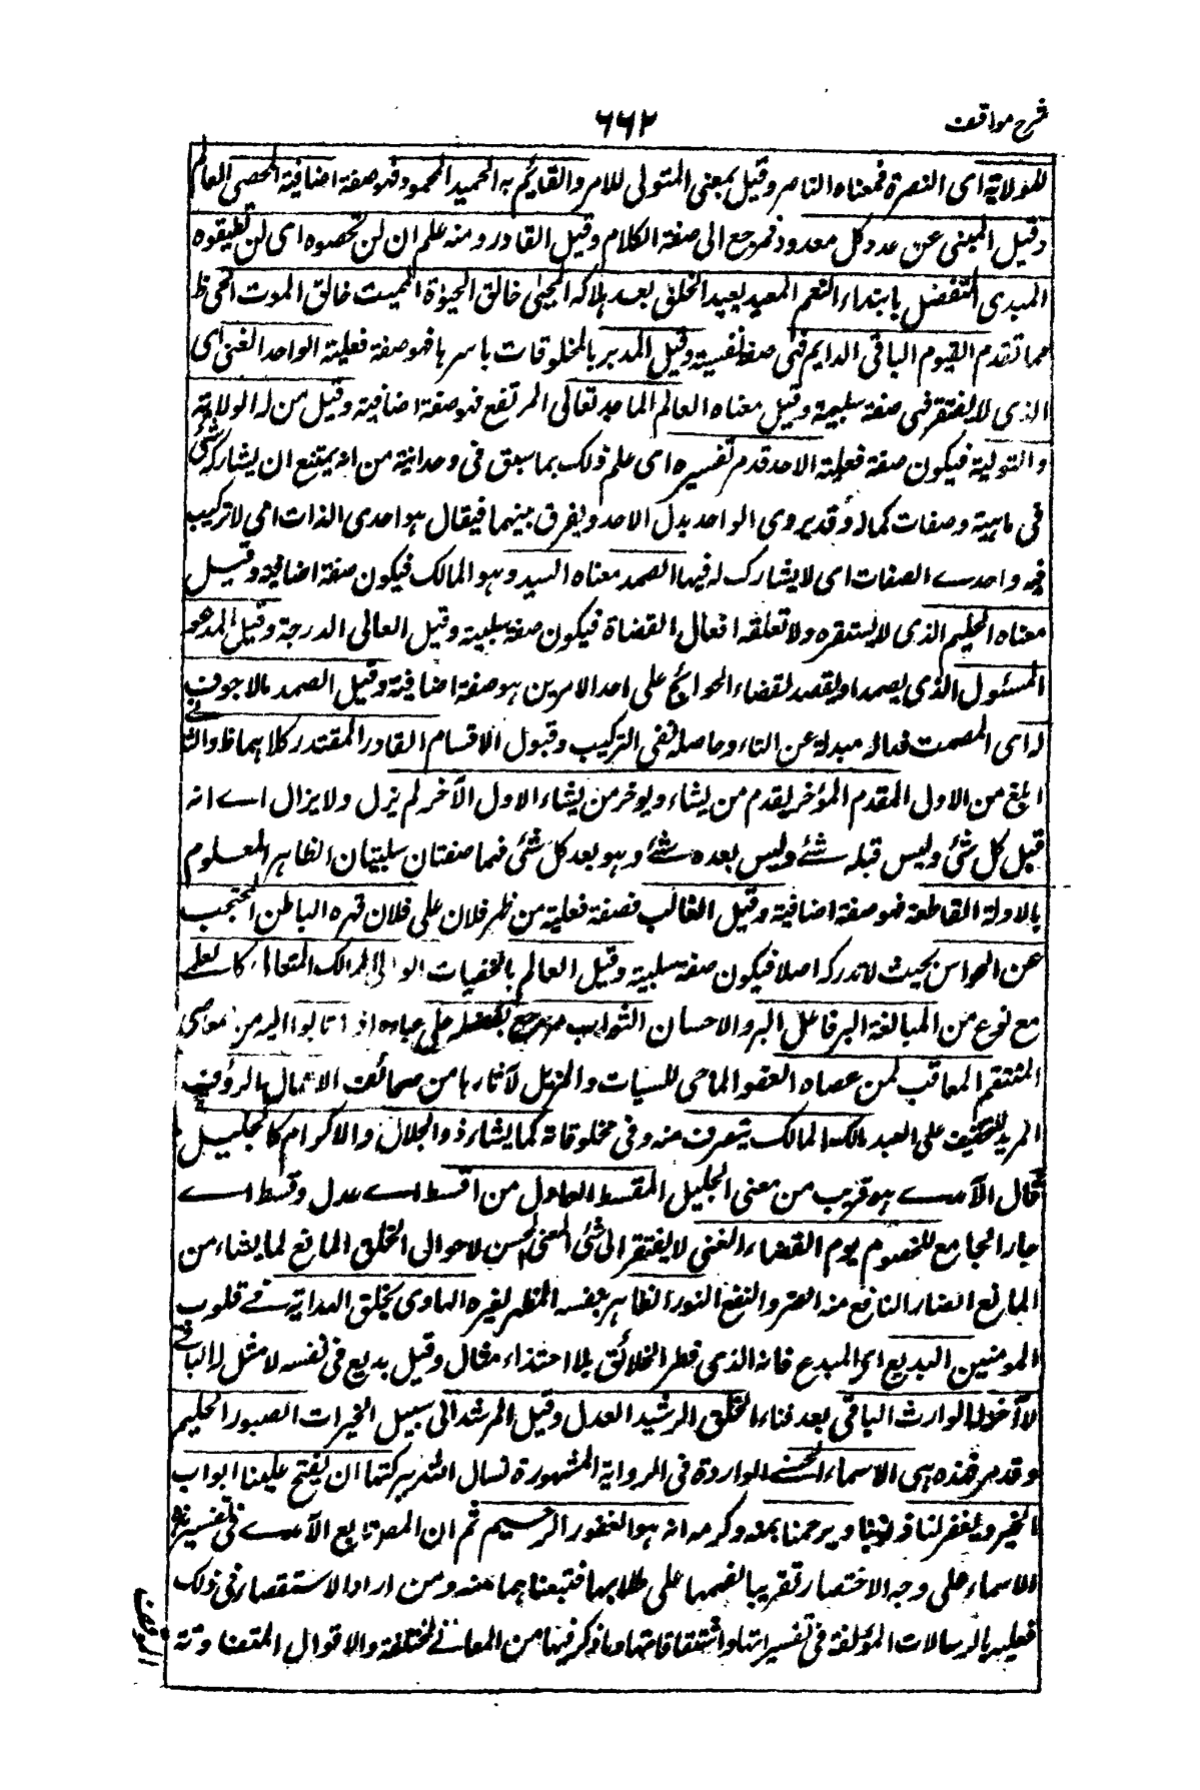 شرح مواقف
٦٦٢
للمولاية اى النصرة فمعناه الناصر وقيل بمعنى المتولى للامر والقايم به الحميد المحمود فهو صفة اضافية المحصى العالم
وقيل المبنى عن عدد كل معدود فمرجع الى صفة الكلام وقيل القادر ومنه علم ان لن تحصوه اى لن تطيقوه
المبدى المتفضل بابتداء النعم المعيد يعيد الخلق بعد هلاكه المحيى خالق الحيوة المميت خالق الموت الحى ظ
مما تقدم القيوم الباقى الدايم فهى صفة نفسية وقيل المدبر بالمخلوقات باسرها فهو صفة فعلية الواحد الغنى اى
الذى لا يفتقر فهى صفة سلبية وقيل معناه العالم الماجد تعالى المرتفع فهو صفة اضافية وقيل من له الولاية
والتولية فيكون صفة فعلية الاحد قدم تفسيره اى علم ذلك بما سبق فى وحدانية من انه يمتنع ان يشاركه شئ
فى ماهية وصفات كماله وقد يروى الواحد بدل الاحد ويفرق بينهما فيقال هو احدى الذات اى لا تركيب
فيه واحدے الصفات اى لا يشارك له فيها الصمد معناه السيد وهو المالك فيكون صفة اضافية وقيل
معناه الحليم الذى لا يستفزه ولا تعلقه افعال القضاة فيكون صفة سلبية وقيل العالى الدرجة وقيل المدعو
المسئول الذى يصمد او يقصد لقضاء الحوائج على احد الامرين هو صفة اضافية وقيل الصمد مالا جوف
له اى المصمت فداله مبدلة عن التاء وحاصله نفى التركيب وقبول الاقسام القادر المقتدر كلاهما ظ والثانے
ابلغ من الاول المقدم المؤخر يقدم من يشاء ويوخر من يشاء الاول الآخر لم يزل ولا يزال اے انه
قبل كل شئ وليس قبله شئ وليس بعده شئ وهو بعد كل شئ فهما صفتان سلبيتان الظاهر المعلوم
بالادلة القاطعة فهو صفة اضافية وقيل الغالب فصفة فعلية من ظهر فلان على فلان قهره الباطن المحتجب
عن الحواس بحيث لا تدركه اصلا فيكون صفة سلبية وقيل العالم بالخفيات الوالى المالك المتعالى كالعلے
مع نوع من المبالغة البر فاعل البر والاحسان التواب يرجع بفضله على عباده اذا تابوا اليه من معاصى
المنتقم المعاقب لمن عصاه العفو الماحى للسيات والمزيل لآثارها من صحائف الاعمال الرؤف
المريد للتخفيف على العبد مالك الملك يتصرف منه وفى مخلوقاته كما يشاء ذو الجلال والاكرام كالجليل
قال الآمدے هو قريب من معنى الجليل المقسط العادل من اقسط اے عدل وقسط اے
جار الجامع للخصوم يوم القضاء الغنى لا يفتقر الى شئ المغنى المحسن لاحوال الخلق المانع لما يشاء من
المانع الضار النافع منه الضر والنفع النور الظاهر بنفسه المظهر لغيره الهادى يخلق الهداية فے قلوب
المومنين البديع اى المبدع فانه الذى فطر الخلائق بلا احتذاء مثال وقيل بديع فى نفسه لا مثل له الباقى
لا آخر له الوارث الباقى بعد فناء الخلق الرشيد العدل وقيل المرشد الى سبيل الخيرات الصبور الحليم
وقد مر فهذه هى الاسماء الحسنے الواردة فى الرواية المشهورة نسال الله ببركتها ان يفتح علينا ابواب
الخير ويغفر لنا ذنوبنا ويرحمنا بمنه وكرمه انه هو الغفور الرحيم ثم ان المصر تابع الآمدے فى تفسير هذه
الاسماء على وجه الاختصار تقريبا لفهمها على طلابها فتبعناهما منه ومن اراد الاستقصاء فى ذلك
فعليه بالرسالات المؤلفة فى تفسيراتها واشتقاقاتها وما ذكر فيها من المعانى المختلفة والاقوال المتفاوتة
الموقف